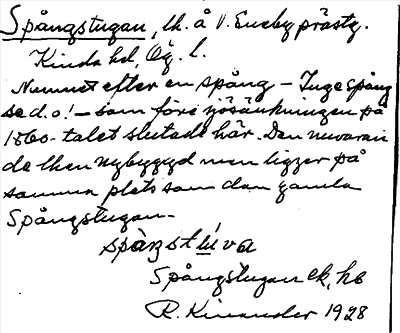 Spångstugan, lht. å V. Eneby prästg.
Kinda hd, Ög. l.
Namnet efter en spång – Ingespång
se d.o! – som före sjösänkningen på
1860-talet slutade här. Den nuvaran
de lhen nybyggd men ligger på
samma plats som den gamla
Spångstugan –
spåŋstúva
Spångstugan ek, hb
R. Kinander 1928